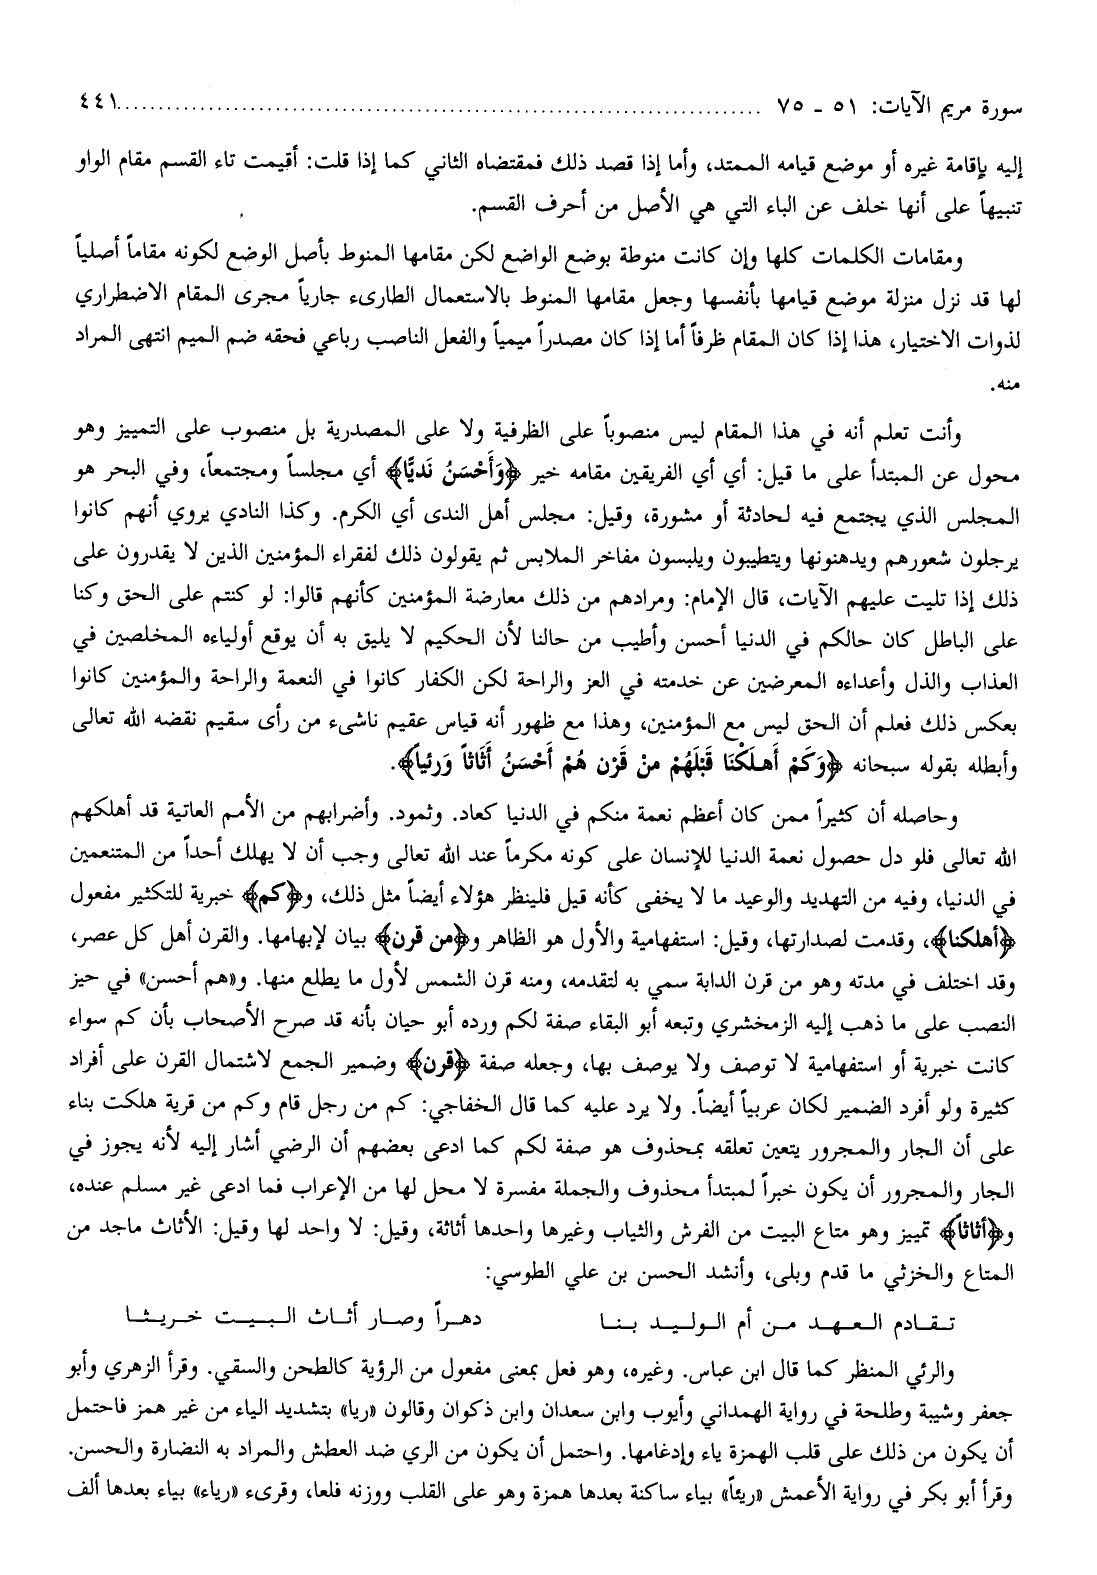 سورة مريم الآيات: ٥١ ـ ٧٥ ................................................................................ ٤٤١
إليه بإقامة غيره أو موضع قيامه الممتد، وأما إذا قصد ذلك فمقتضاه الثاني كما إذا قلت: أقيمت تاء القسم مقام الواو
تنبيهاً على أنها خلف عن الباء التي هي الأصل من أحرف القسم.
ومقامات الكلمات كلها وإن كانت منوطة بوضع الواضع لكن مقامها المنوط بأصل الوضع لكونه مقاماً أصلياً
لها قد نزل منزلة موضع قيامها بأنفسها وجعل مقامها المنوط بالاستعمال الطارىء جارياً مجرى المقام الاضطراري
لذوات الاختيار، هذا إذا كان المقام ظرفاً أما إذا كان مصدراً ميمياً والفعل الناصب رباعي فحقه ضم الميم انتهى المراد
منه.
وأنت تعلم أنه في هذا المقام ليس منصوباً على الظرفية ولا على المصدرية بل منصوب على التمييز وهو
محول عن المبتدأ على ما قيل: أي أي الفريقين مقامه خير ﴿وَأَحْسَنُ نَدِيًّا﴾ أي مجلساً ومجتمعاً، وفي البحر هو
المجلس الذي يجتمع فيه لحادثة أو مشورة، وقيل: مجلس أهل الندى أي الكرم. وكذا النادي يروي أنهم كانوا
يرجلون شعورهم ويدهنونها ويتطيبون ويلبسون مفاخر الملابس ثم يقولون ذلك لفقراء المؤمنين الذين لا يقدرون على
ذلك إذا تليت عليهم الآيات، قال الإمام: ومرادهم من ذلك معارضة المؤمنين كأنهم قالوا: لو كنتم على الحق وكنا
على الباطل كان حالكم في الدنيا أحسن وأطيب من حالنا لأن الحكيم لا يليق به أن يوقع أولياءه المخلصين في
العذاب والذل وأعداءه المعرضين عن خدمته في العز والراحة لكن الكفار كانوا في النعمة والراحة والمؤمنين كانوا
بعكس ذلك فعلم أن الحق ليس مع المؤمنين، وهذا مع ظهور أنه قياس عقيم ناشىء من رأى سقيم نقضه الله تعالى
وأبطله بقوله سبحانه ﴿وَكَمْ أَهلَكْنَا قَبْلَهُمْ منْ قَرْن هُمْ أَحْسَنُ أَثَاثاً وَرئياً﴾.
وحاصله أن كثيراً ممن كان أعظم نعمة منكم في الدنيا كعاد. وثمود. وأضرابهم من الأمم العاتية قد أهلكهم
الله تعالى فلو دل حصول نعمة الدنيا للإنسان على كونه مكرماً عند الله تعالى وجب أن لا يهلك أحداً من المتنعمين
في الدنيا، وفيه من التهديد والوعيد ما لا يخفى كأنه قيل فلينظر هؤلاء أيضاً مثل ذلك، و﴿كم﴾ خبرية للتكثير مفعول
﴿أهلكنا﴾، وقدمت لصدارتها، وقيل: استفهامية والأول هو الظاهر و﴿من قرن﴾ بيان لإبهامها. والقرن أهل كل عصر،
وقد اختلف في مدته وهو من قرن الدابة سمي به لتقدمه، ومنه قرن الشمس لأول ما يطلع منها. و«هم أحسن» في حيز
النصب على ما ذهب إليه الزمخشري وتبعه أبو البقاء صفة لكم ورده أبو حيان بأنه قد صرح الأصحاب بأن كم سواء
كانت خبرية أو استفهامية لا توصف ولا يوصف بها، وجعله صفة ﴿قرن﴾ وضمير الجمع لاشتمال القرن على أفراد
كثيرة ولو أفرد الضمير لكان عربياً أيضاً. ولا يرد عليه كما قال الخفاجي: كم من رجل قام وكم من قرية هلكت بناء
على أن الجار والمجرور يتعين تعلقه بمحذوف هو صفة لكم كما ادعى بعضهم أن الرضي أشار إليه لأنه يجوز في
الجار والمجرور أن يكون خبراً لمبتدأ محذوف والجملة مفسرة لا محل لها من الإعراب فما ادعى غير مسلم عنده،
و﴿أثاثاً﴾ تمييز وهو متاع البيت من الفرش والثياب وغيرها واحدها أثاثة، وقيل: لا واحد لها وقيل: الأثاث ماجد من
المتاع والخزثي ما قدم وبلى، وأنشد الحسن بن علي الطوسي:
تقادم العهد من أم الوليد بنا دهراً وصار أثاث البيت خريثا
والرئي المنظر كما قال ابن عباس. وغيره، وهو فعل بمعنى مفعول من الرؤية كالطحن والسقي. وقرأ الزهري وأبو
جعفر وشيبة وطلحة في رواية الهمداني وأيوب وابن سعدان وابن ذكوان وقالون «ريا» بتشديد الياء من غير همز فاحتمل
أن يكون من ذلك على قلب الهمزة ياء وإدغامها. واحتمل أن يكون من الري ضد العطش والمراد به النضارة والحسن.
وقرأ أبو بكر في رواية الأعمش «ريئاً» بياء ساكنة بعدها همزة وهو على القلب ووزنه فلعا، وقرىء «رياء» بياء بعدها ألف